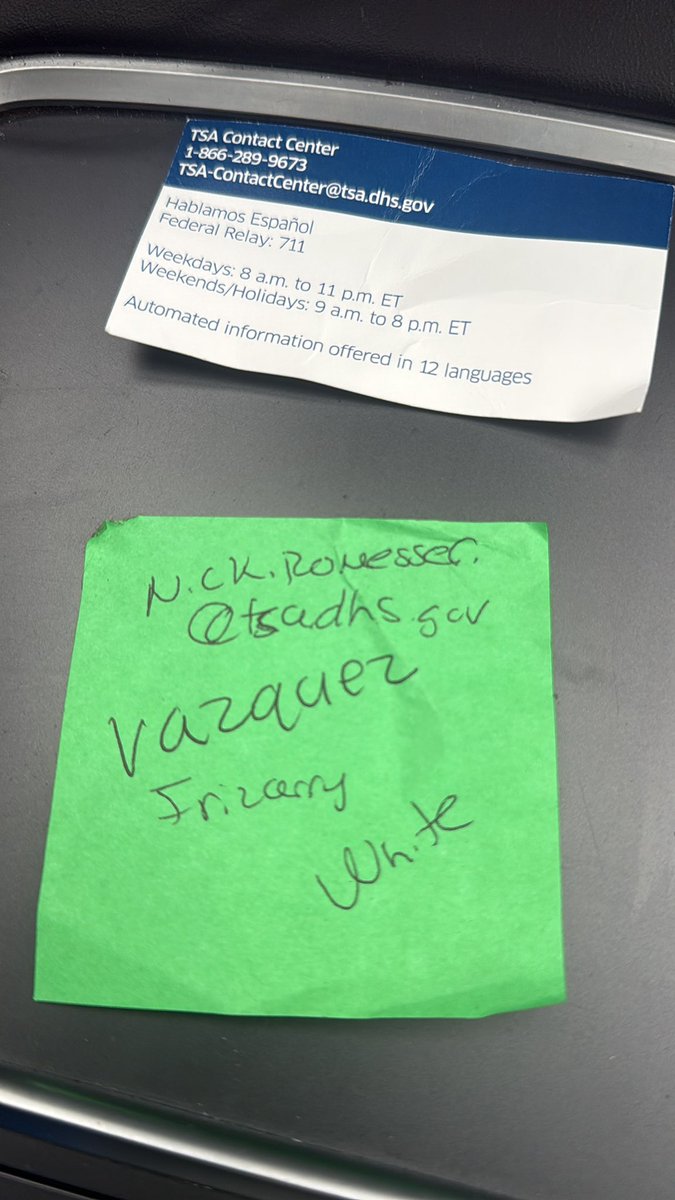 TSA Contact Center
1-866-289-9673
TSA-ContactCenter@tsa.dhs.gov
Hablamos Español
Federal Relay: 711
Weekdays: 8 a.m. to 11 p.m. ET
Weekends/Holidays: 9 a.m. to 8 p.m. ET
Automated information offered in 12 languages
@tsadhs.gov
Vazquez
Irizarry
White